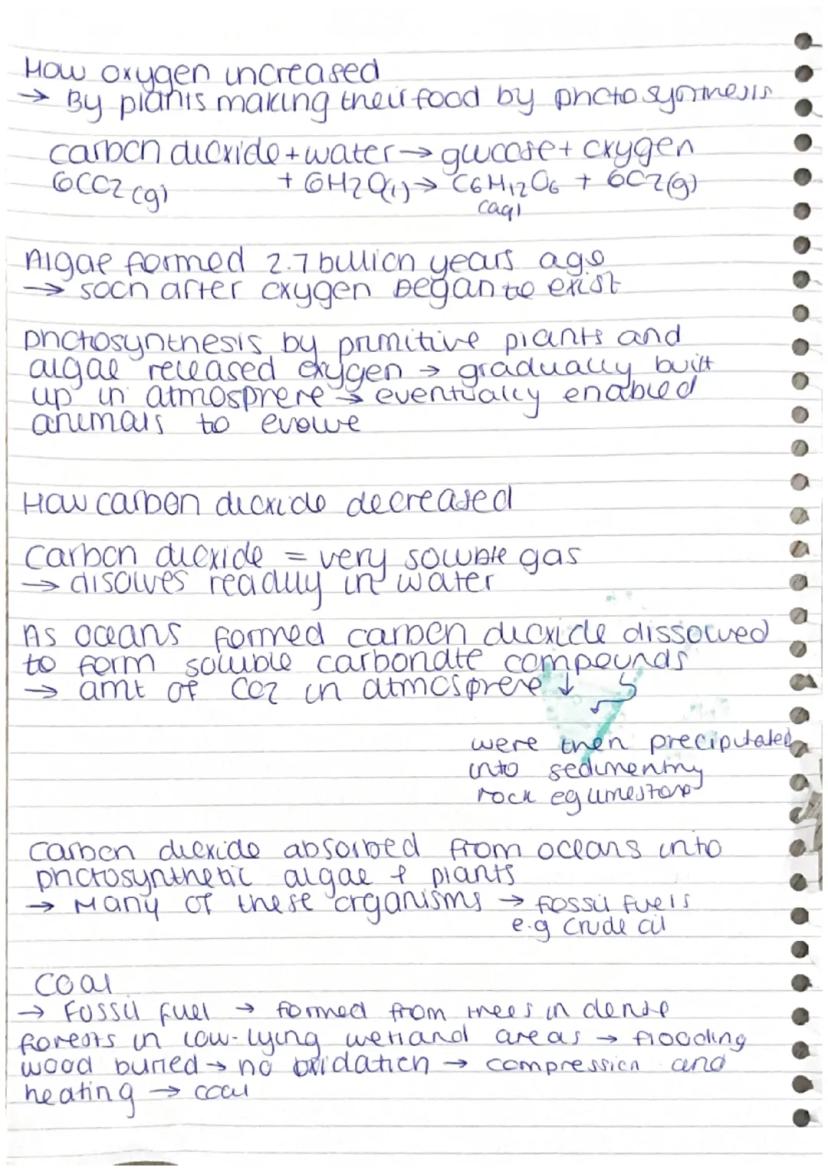 How oxygen increased
→ By plants making their food by photosynthesis
carbon dioxide + water → glucose + oxygen
6CO2 (g) + 6H2O(l) → C6H12O6 + 6O2(g)
(aq)
Algae formed 2.7 billion years ago
→ soon after oxygen began to exist
photosynthesis by primitive plants and
algae released oxygen → gradually built
up in atmosphere → eventually enabled
animals to evolve
How carbon dioxide decreased
Carbon dioxide = very soluble gas
→ disolves readily in water
As oceans formed carbon dioxide dissolved
to form soluble carbondate compounds
→ amt of CO2 in atmosphere ↓
were then precipitated
into sedimentry
rock eg limestone
Carbon dioxide absorbed from oceans into
photosynthetic algae + plants
→ Many of these organisms → fossil fuels
e.g crude oil
Coal
→ Fossil fuel → formed from trees in dense
forests in low-lying wetland areas → flooding
wood buried → no oxidation → compression and
heating → coal